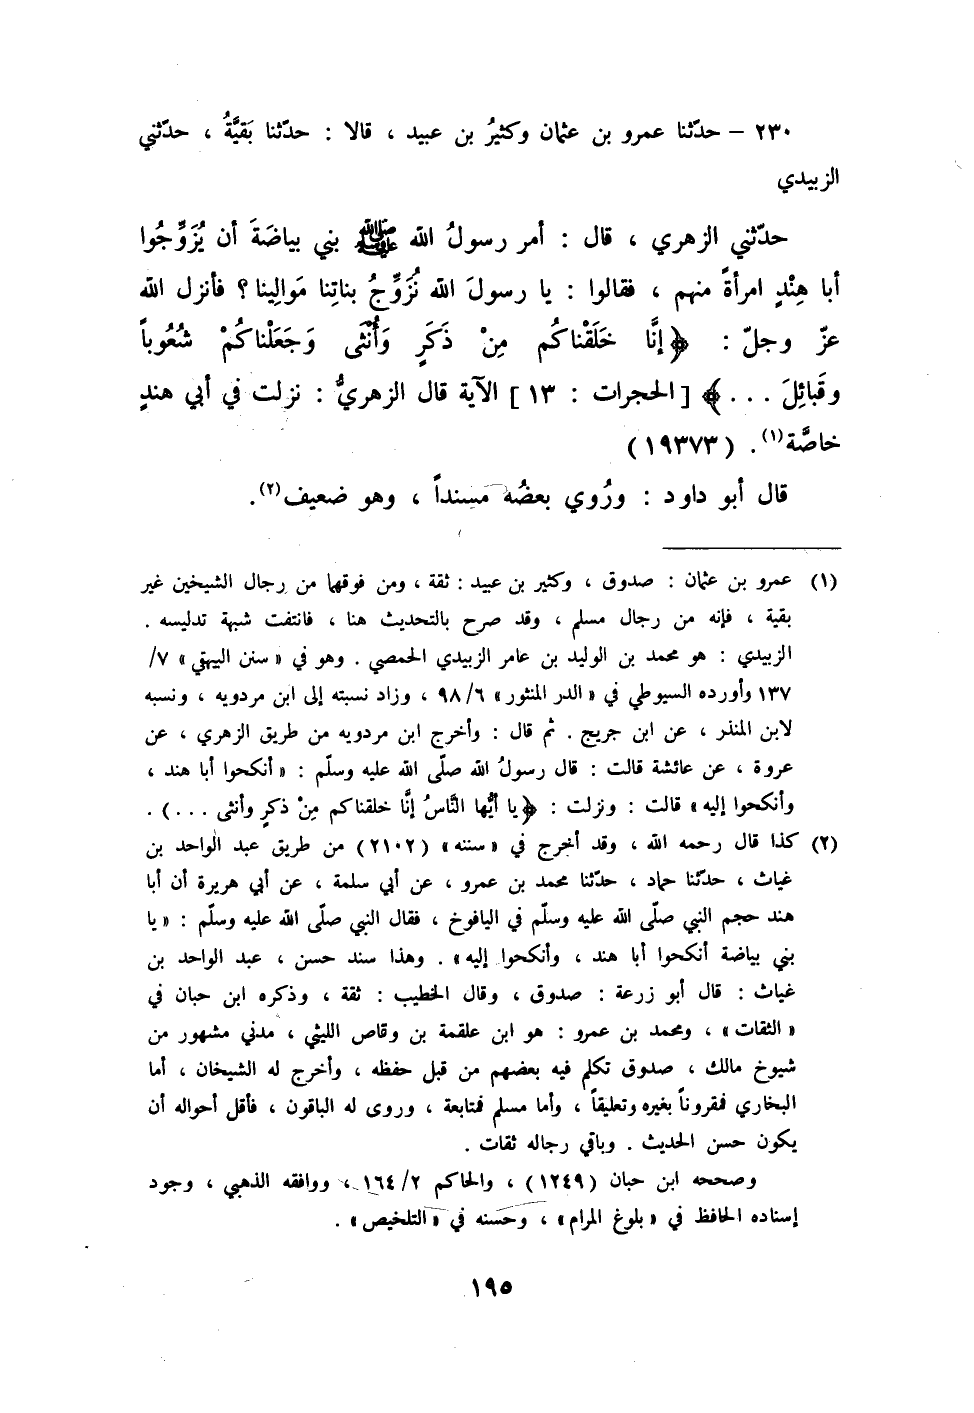 ٢٣٠ – حدّثنا عمرو بن عثمان وكثيرُ بن عبيد ، قالا : حدّثنا بَقيَّةُ ، حدّثني
الزبيدي
حدّثني الزهري ، قال : أمر رسولُ الله ﷺ بني بياضَةَ أن يُزَوِّجُوا
أبا هِنْدٍ امرأةً منهم ، فقالوا : يا رسولَ الله نُزَوِّجُ بناتِنا مَوالِينا ؟ فأنزل الله
عزّ وجلّ : ﴿ إنَّا خَلَقْناكُم مِنْ ذَكَرٍ وَأُنْثَى وَجَعَلْناكُمْ شُعُوباً
وقَبائِلَ . . . ﴾ [ الحجرات : ١٣ ] الآية قال الزهريُّ : نزلت في أبي هندٍ
خاصَّة(١) . ( ١٩٣٧٣ )
قال أبو داود : ورُوي بعضُه مسنداً ، وهو ضعيف(٢) .
(١) عمرو بن عثمان : صدوق ، وكثير بن عبيد : ثقة ، ومن فوقهما من رجال الشيخين غير
بقية ، فإنه من رجال مسلم ، وقد صرح بالتحديث هنا ، فانتفت شبهة تدليسه .
الزبيدي : هو محمد بن الوليد بن عامر الزبيدي الحمصي . وهو في « سنن البيهقي » ٧/
١٣٧ وأورده السيوطي في « الدر المنثور » ٩٨/٦ ، وزاد نسبته إلى ابن مردويه ، ونسبه
لابن المنذر ، عن ابن جريج . ثم قال : وأخرج ابن مردويه من طريق الزهري ، عن
عروة ، عن عائشة قالت : قال رسولُ الله صلّى الله عليه وسلّم : « أنكحوا أبا هند ،
وأنكحوا إليه » قالت : ونزلت : ﴿ يا أيُّها النَّاسُ إنَّا خلقناكم مِنْ ذكرٍ وأنثى . . . ) .
(٢) كذا قال رحمه الله ، وقد أخرج في « سننه » (٢١٠٢) من طريق عبد الواحد بن
غياث ، حدّثنا حماد ، حدّثنا محمد بن عمرو ، عن أبي سلمة ، عن أبي هريرة أن أبا
هند حجم النبي صلّى الله عليه وسلّم في اليافوخ ، فقال النبي صلّى الله عليه وسلّم : « يا
بني بياضة أنكحوا أبا هند ، وأنكحوا إليه » . وهذا سند حسن ، عبد الواحد بن
غياث : قال أبو زرعة : صدوق ، وقال الخطيب : ثقة ، وذكره ابن حبان في
« الثقات » ، ومحمد بن عمرو : هو ابن علقمة بن وقاص الليثي ، مدني مشهور من
شيوخ مالك ، صدوق تكلم فيه بعضهم من قبل حفظه ، وأخرج له الشيخان ، أما
البخاري فمقروناً بغيره وتعليقاً ، وأما مسلم فمتابعة ، وروى له الباقون ، فأقل أحواله أن
يكون حسن الحديث . وباقي رجاله ثقات .
وصححه ابن حبان (١٢٤٩) ، والحاكم ١٦٤/٢ ، ووافقه الذهبي ، وجود
إسناده الحافظ في « بلوغ المرام » ، وحسنه في « التلخيص » .
١٩٥